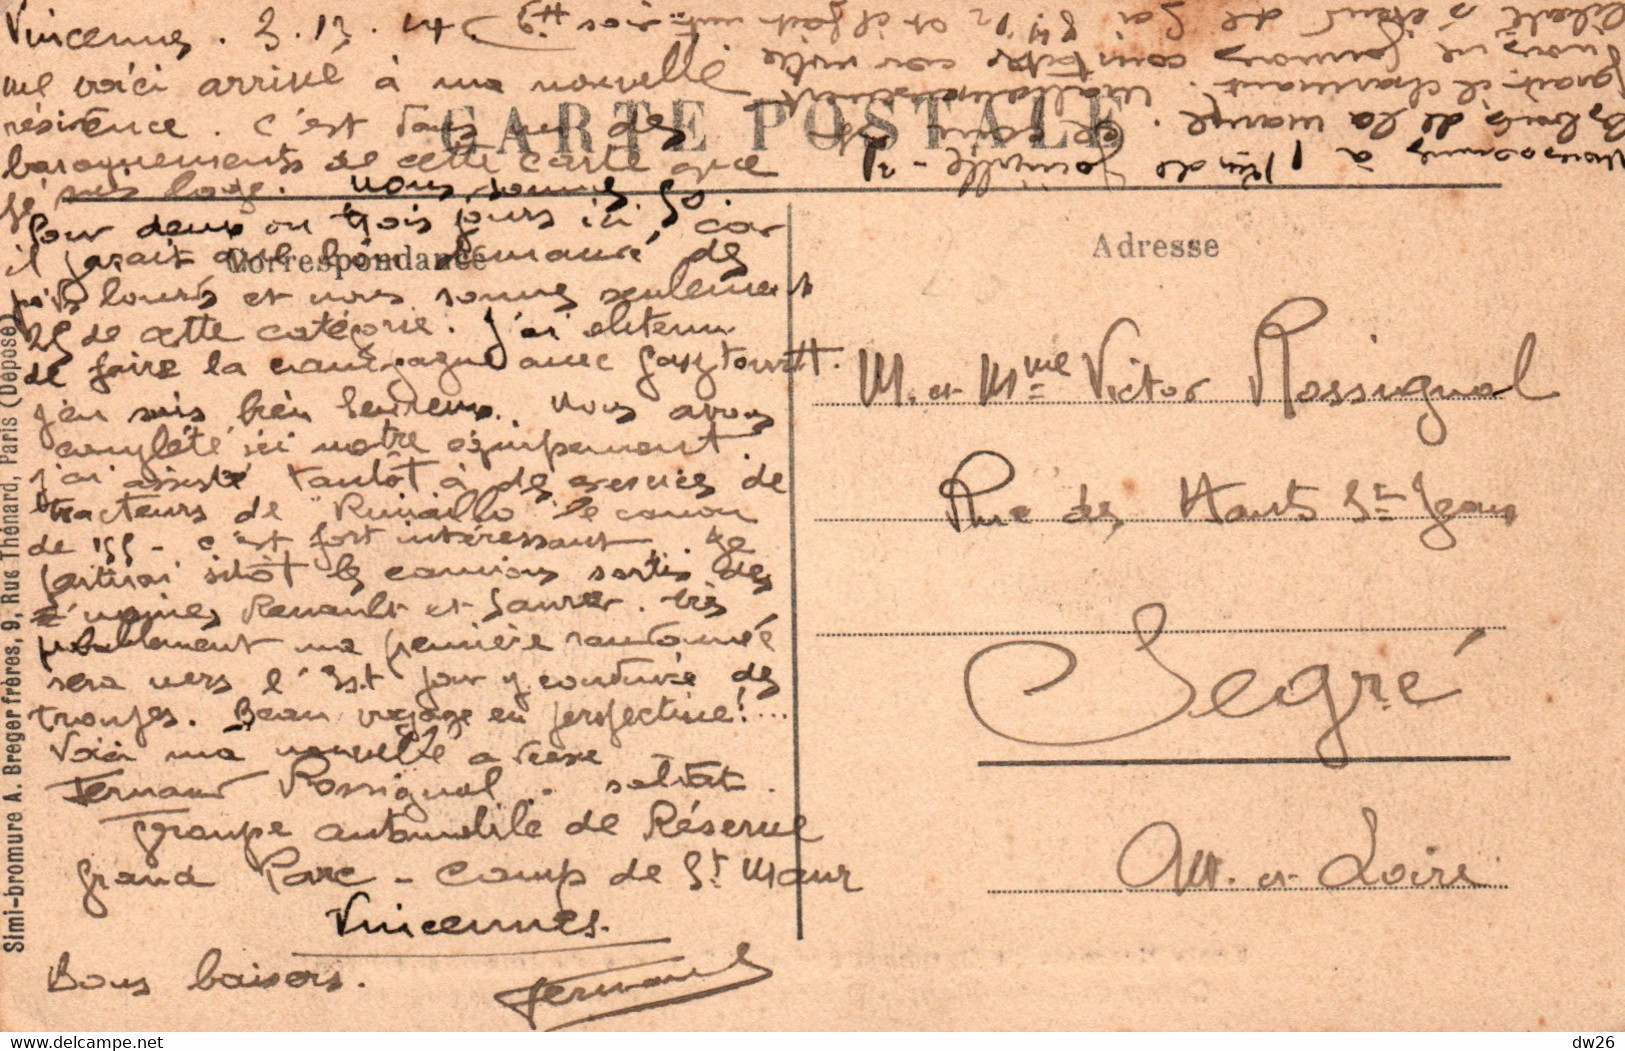 Vincennes. 3.12.14.
me voici arrivé à ma nouvelle
résidence. C'est dans un des
baraquements de cette carte que
je suis logé. nous sommes
pour deux ou trois jours ici car
il paraît demandé des
poids lourds et nous sommes seulement
25 de cette catégorie. J'ai obtenu
de faire la campagne avec
j'en suis bien heureux. Nous avons
complété ici notre équipement
j'ai assisté tantôt à des de
tracteurs de "Rimailho" le canon
de 155 - c'est fort intéressant. Je
partirai sitôt les camions sortis des
usines Renault et Saurer. très
probablement ma première randonnée
sera vers l'Est pour y conduire des
troupes. Beau voyage en perspective!...
Voici ma nouvelle adresse
Fernand Rossignol. soldat.
Groupe automobile de Réserve
Grand Parc - Camp de St Maur
Vincennes.
Bons baisers. Fernand
nous sommes à de Joinville
bords de la marne. le coin est
charmant. Malheureusement
nous ne pouvons constater car notre
liberté s'étend de 5h 1/2 et il fait nuit
CARTE POSTALE
Correspondance
Adresse
M. et Mme Victor Rossignol
Rue des Hauts St Jean
Segré
M. et Loire
Simi-bromure A. Breger frères, 9, Rue Thénard, Paris (Déposé)
dw26